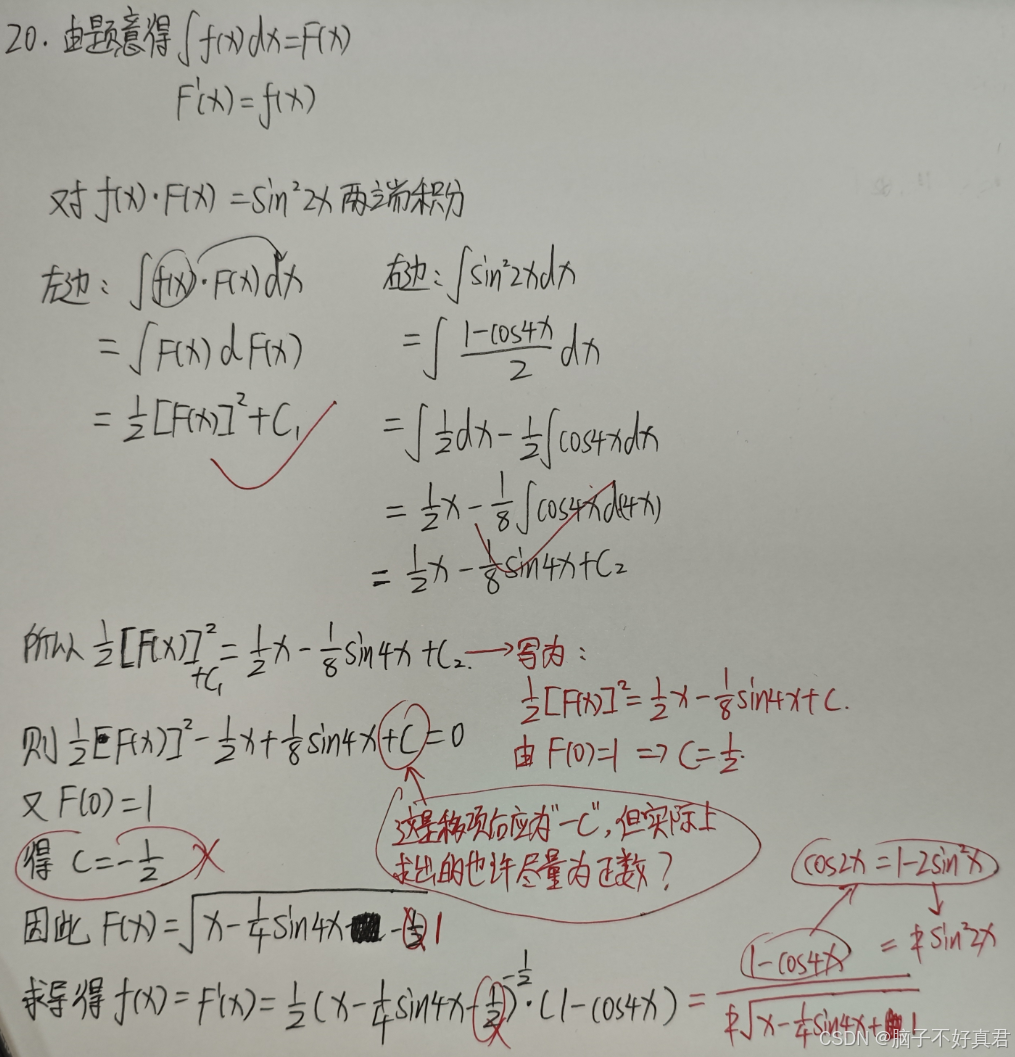 20. 由题意得∫f(x)dx=F(x)
F'(x)=f(x)
对 f(x)·F(x)=sin²2x 两端积分
左边: ∫f(x)·F(x)dx
=∫F(x)dF(x)
=½[F(x)]²+C₁
右边: ∫sin²2xdx
=∫(1-cos4x)/2 dx
=∫½dx-½∫cos4xdx
=½x-⅛∫cos4xd(4x)
=½x-⅛sin4x+C₂
所以 ½[F(x)]²+C₁=½x-⅛sin4x+C₂. →写为:
½[F(x)]²=½x-⅛sin4x+C.
由 F(0)=1 ⇒ C=½.
则 ½[F(x)]²-½x+⅛sin4x+C=0
又 F(0)=1
这是移项后应为"-C", 但实际上
求出的也许尽量为正数?
得 C=-½ ×
cos2x=1-2sin²x
因此 F(x)=√(x-¼sin4x 1
1-cos4x = sin²2x
求导得 f(x)=F'(x)=½(x-¼sin4x+½)^(-½)·(1-cos4x)=
√(x-¼sin4x+1
CSDN @脑子不好真君